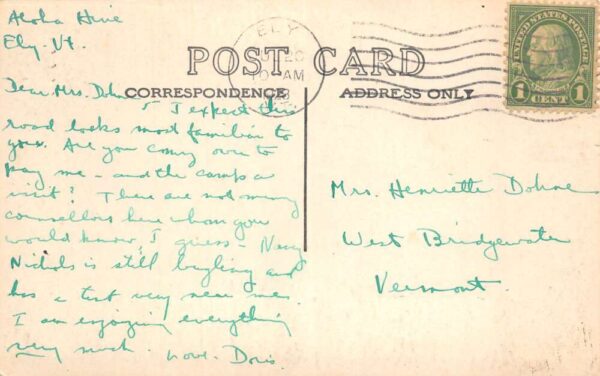 Aloha Hive
Ely. Vt.
ELY
10 AM
UNITED STATES POSTAGE
1 CENT 1
POST CARD
CORRESPONDENCE
ADDRESS ONLY
Dear Mrs. Dohne
I expect this
road looks most familiar to
you. Are you coming over to
pay me - and the camps a
visit? There are not many
counsellors here whom you
would know, I guess - Nancy
Nichols is still bugling and
has a tent very near me.
I am enjoying everything
very much. Love. Doris.
Mrs. Henriette Dohne
West Bridgewater
Vermont.